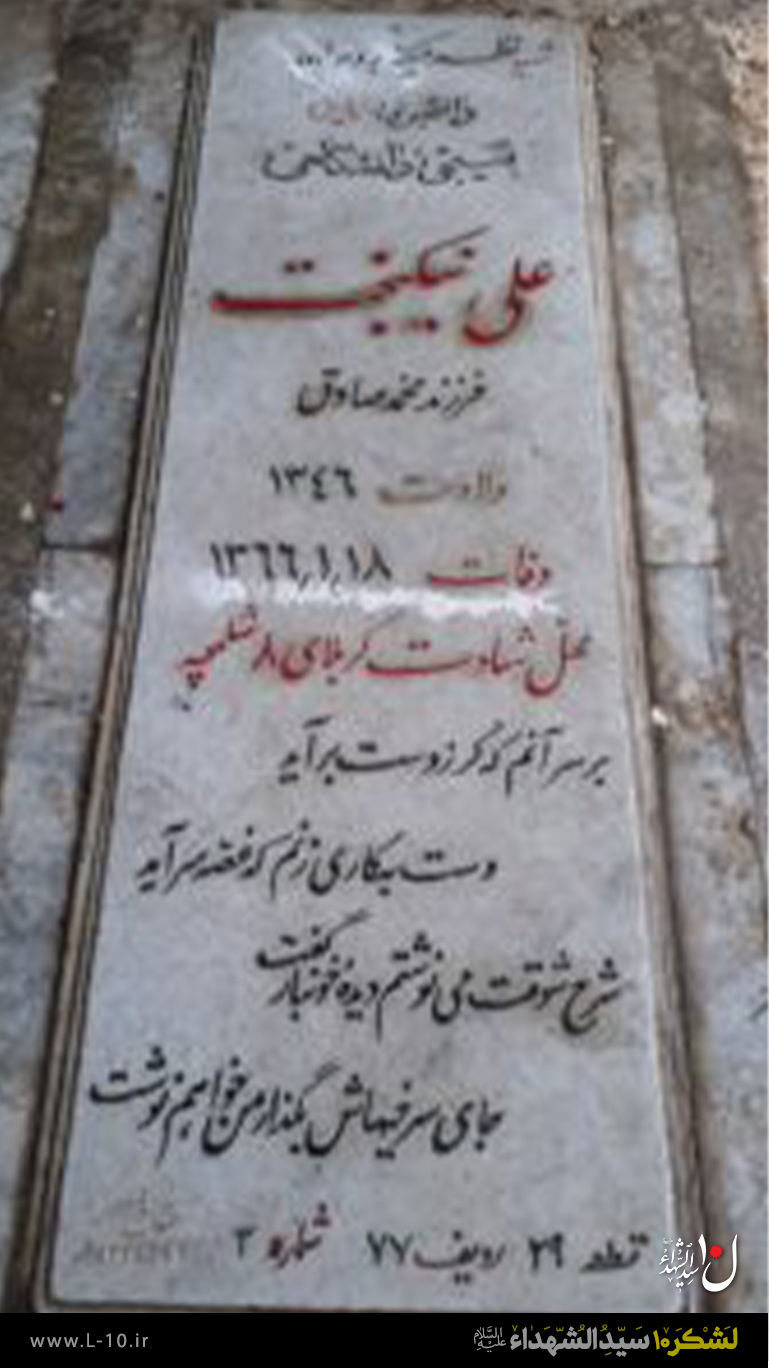 دانشجوی
بسیجی دانشگاهی
علی نیکبخت
فرزند محمدصادق
ولادت ۱۳۴۶
وفات ۱۳۶۶/۱/۱۸
محل شهادت کربلای ۸ شلمچه
بر سر آنم که گر ز دست برآید
دست بکاری زنم که غصه سرآید
شرح شوقت می نوشتم دیده خونبار گفت
جای سرخیهاش بگذار من خواهم نوشت
قطعه ۲۹ ردیف ۷۷ شماره ۳
لشکر ۱۰ سیدالشهداء
www.L-10.ir لَشکَر۱۰ سَیّدِالشُّهَداء علیه‌السلام